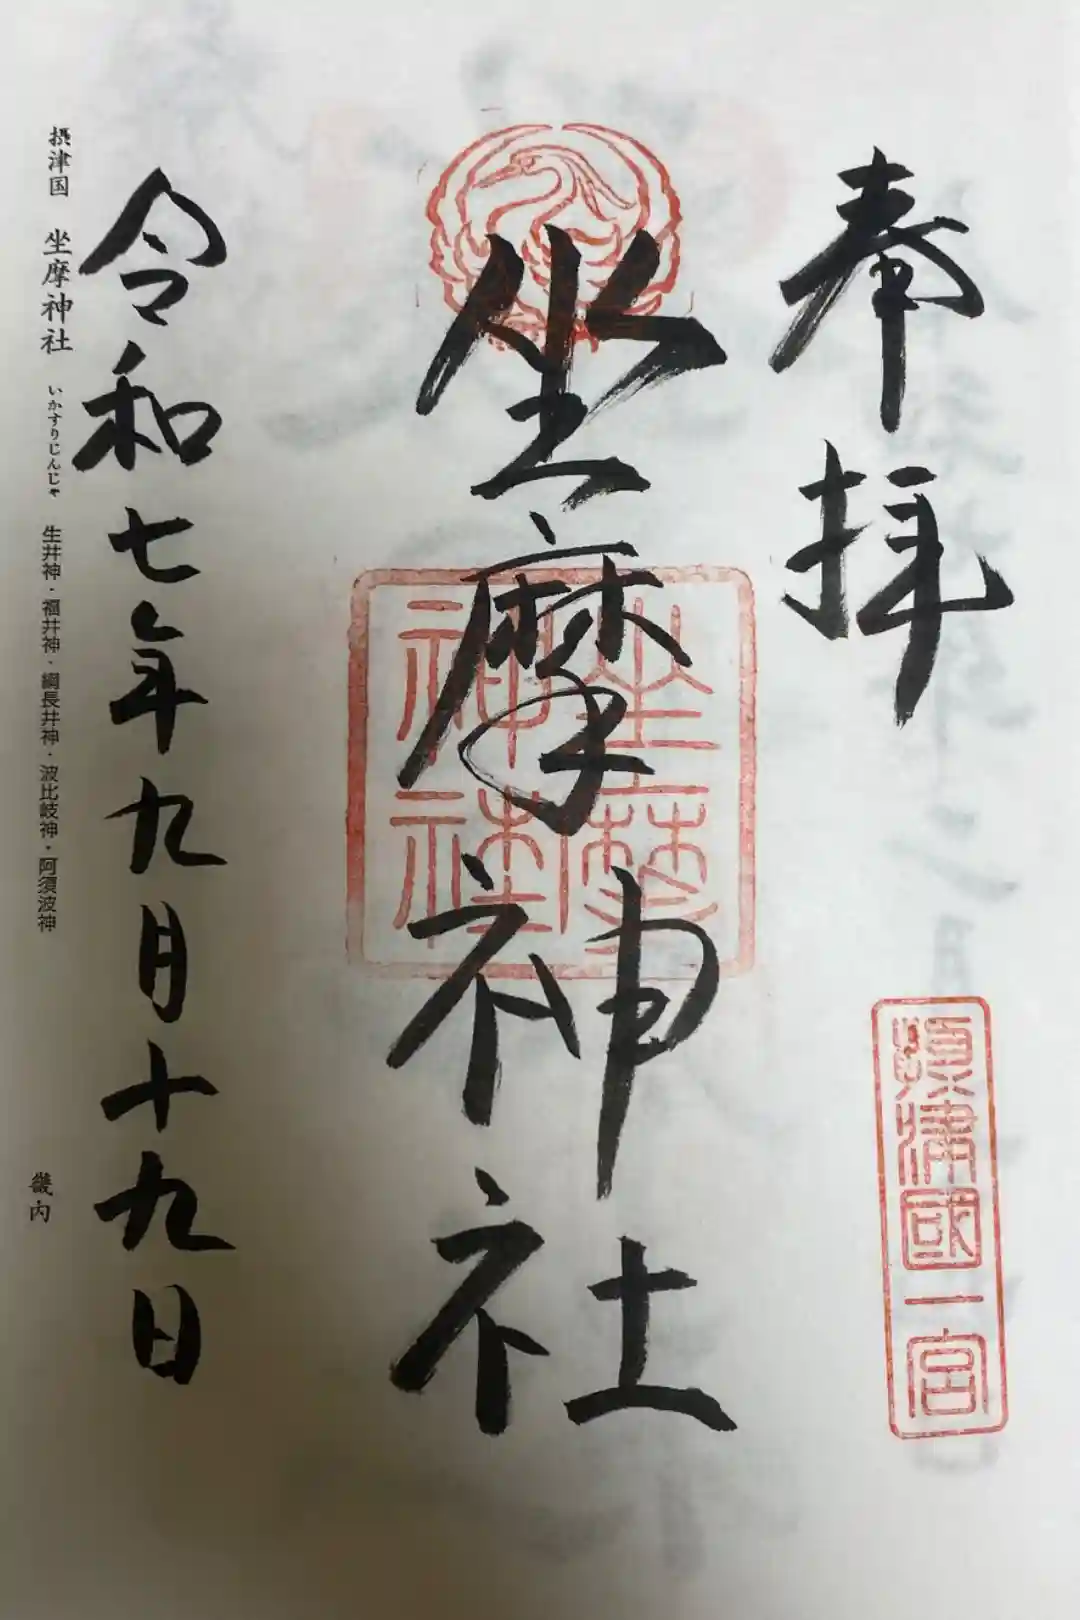 奉拝
攝津國一宮
坐摩神社
坐摩神社
令和七年九月十九日
摂津国 坐摩神社 いかすりじんじゃ 生井神・福井神・綱長井神・波比岐神・阿須波神 畿内